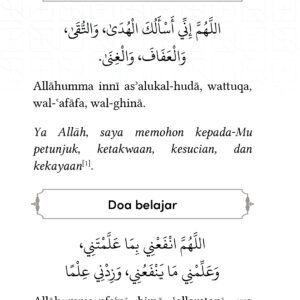 اللَّهُمَّ إِنِّي أَسْأَلُكَ الْهُدَىٰ، وَالتُّقَىٰ،
وَالْعَفَافَ، وَالْغِنَىٰ.
Allāhumma innī as’alukal-hudā, wattuqa,
wal-‘afāfa, wal-ghinā.
Ya Allāh, saya memohon kepada-Mu
petunjuk, ketakwaan, kesucian, dan
kekayaan[1].
Doa belajar
اللَّهُمَّ انْفَعْنِي بِمَا عَلَّمْتَنِي،
وَعَلِّمْنِي مَا يَنْفَعُنِي، وَزِدْنِي عِلْمًا